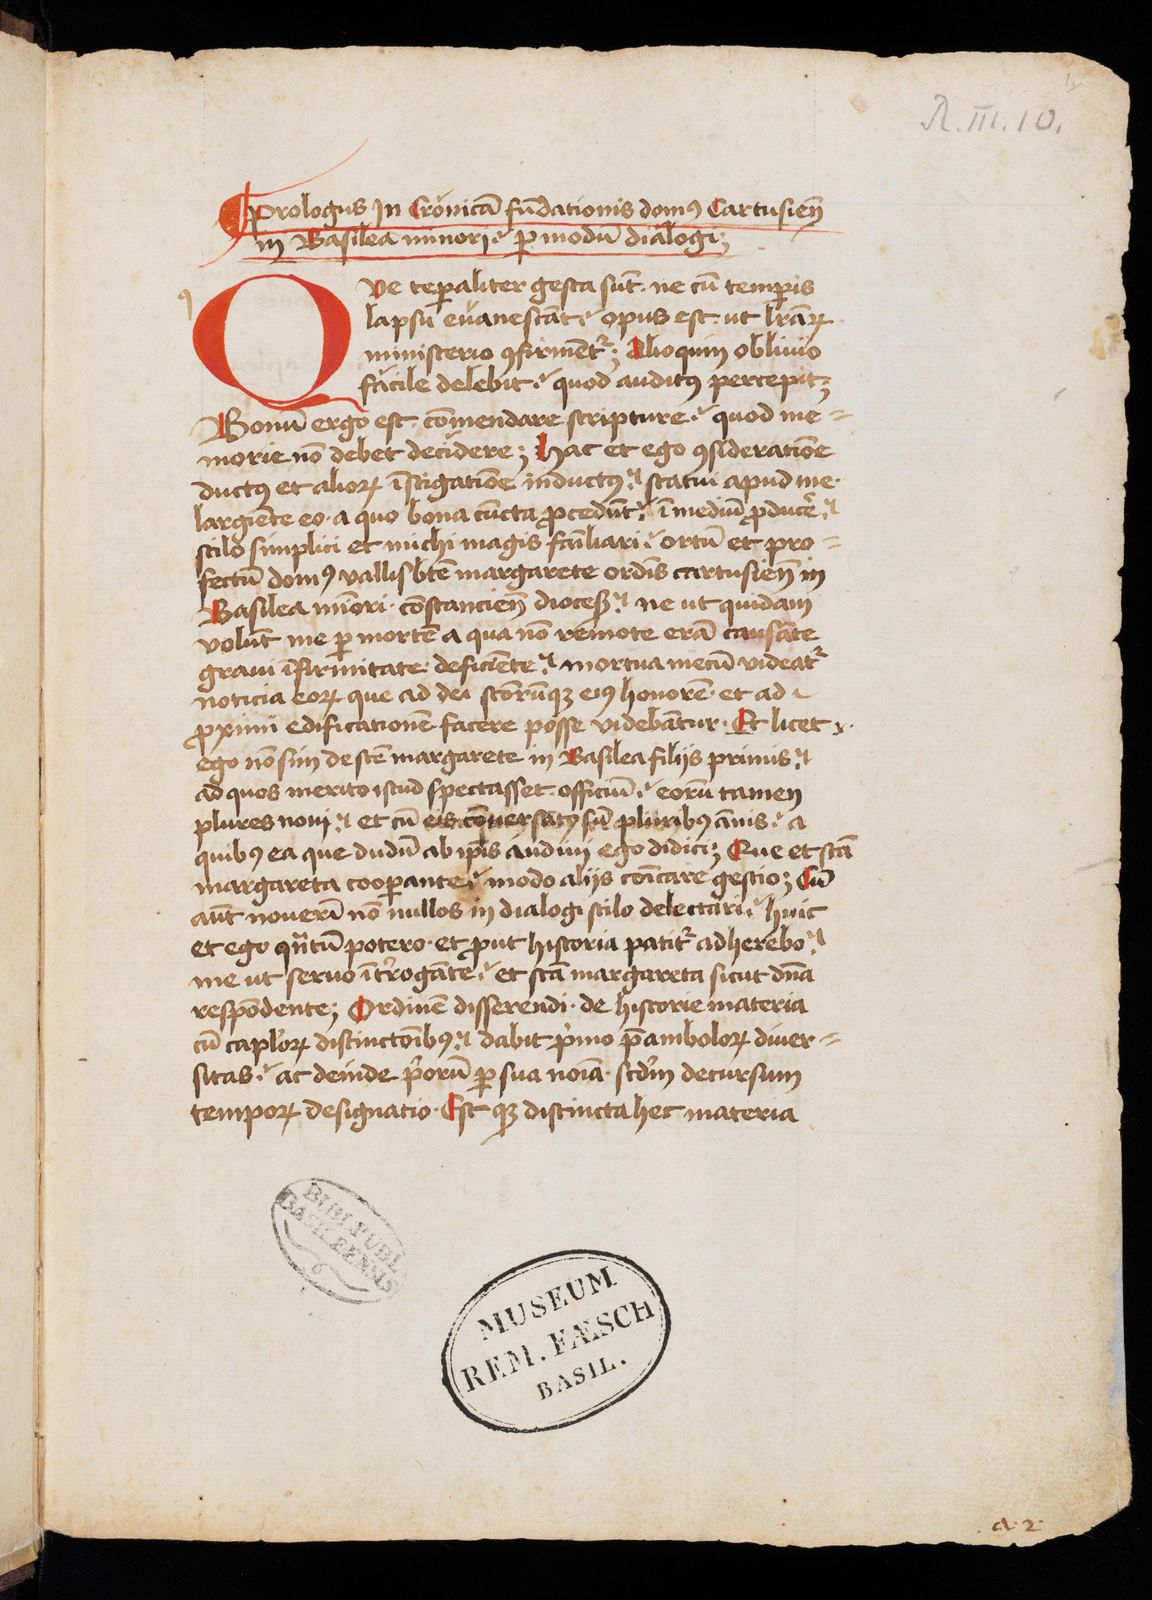 A. III. 10.
Prologus In Cronicā fūdationis domꝰ Cartusieñ
in Basilea minori· ꝑ modū dialogi;
Que teꝑaliter gesta sūt· ne cū temꝑis
lapsu evanescāt· opus est· ut lr̄aꝝ
ministerio ꝯfirmētᷣ; Alioquin oblivio
facile delebit· quod auditꝰ percepit;
Bonū ergo est· cōmendare scripture· quod me=
morie nō debet decidere; Hac et ego ꝯsideratiōe
ductꝰ et alioꝝ īstigatiōe inductꝰ· statui apud me·
largiēte eo· a quo bona cūcta ꝓcedūt· ī mediū ꝓducẽ·
stilo simplici et michi magis familiari· ortū et pro=
fectū domꝰ vallis bt̄e margarete ordīs cartusieñ in
Basilea mīori· cōstancieñ dioceſ· ne ut quidam
volūt me ꝑ mortē a qua nō remote erā causāte
gravi īfirmitate· deficiēte· mortua mecū videatᷣ
noticia eoꝝ que ad dei sc̄torūqꝫ eiꝰ honorē· et ad
ꝓximi edificationē facere posse videbātur· Et licet
ego nō sim de sc̄te margarete in Basilea filijs primis·
ad quos merito istud spectasset officiū· eorū tamen
plures novi· et cū eis cōversatꝰ sū pluribꝰ ānis· a
quibꝰ ea que dudū ab ip̄is audivi ego didici; Que et sc̄ta
margareta cooꝑante· modo alijs cōīcare gestio; Cū
aūt noverī nō nullos in dialogi stilo delectari· huic
et ego qn̄tū potero· et ꝓut historia patitᷣ adherebo·
me ut servo īt̓rogāte· et sc̄ta margareta sicut dn̄a
respōdente; Ordinē disserendi· de historie materia
cū capl̓oꝝ distinctōībꝰ· dabit pⁱmo p̄amboloꝝ diver=
sitas· ac deinde pⁱorū ꝑ sua noīa· scd̓m decursum
tempoꝝ designatio· Est qꝫ distincta hec materia
BIBL. PUBL.
BASILEENSIS
MUSEUM
REM. FÆSCH
BASIL.
a· 2·